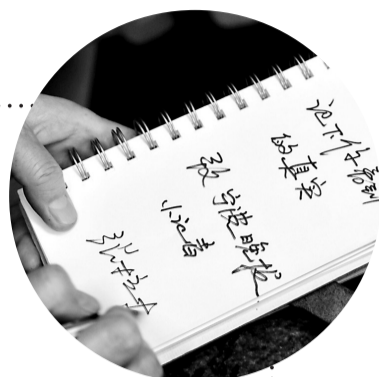 记下你看到
的真实
致宁波晚报
小记者